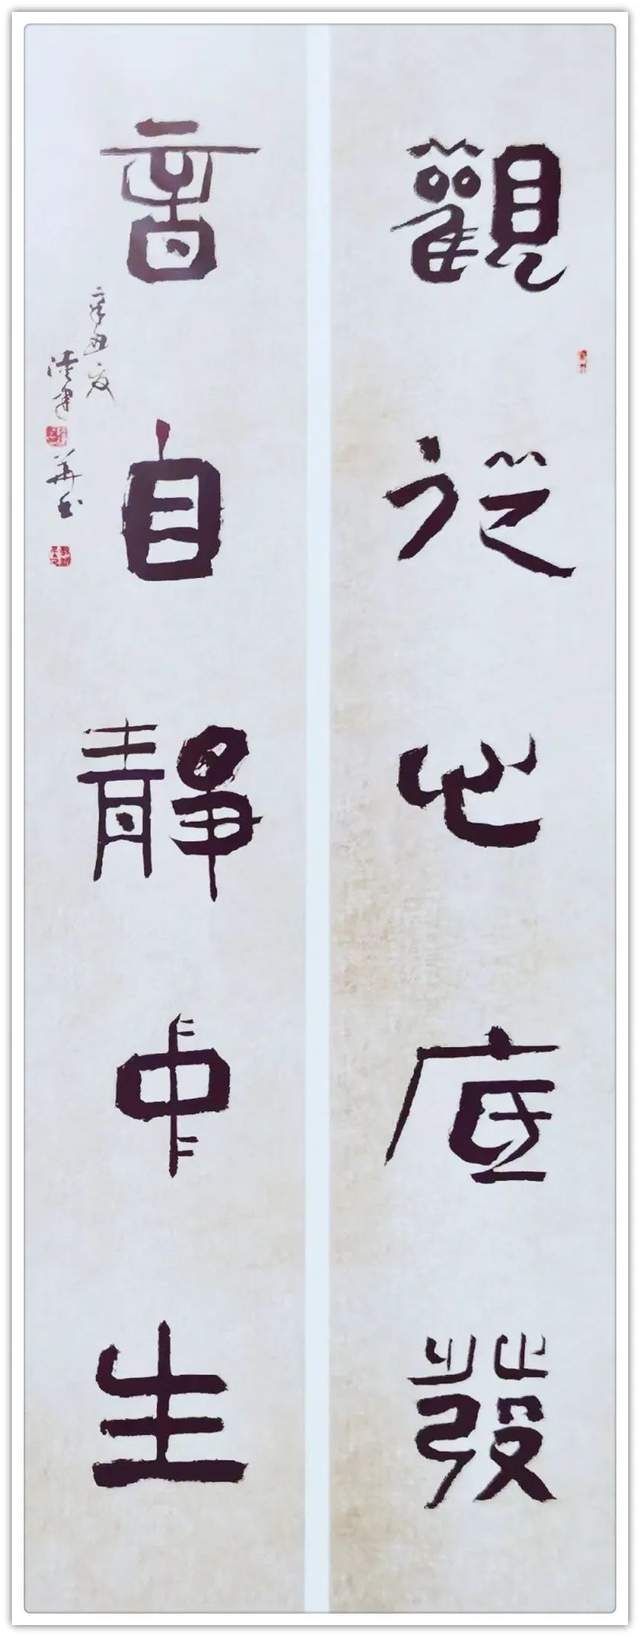 觀從心底發
音自靜中生
辛丑夏